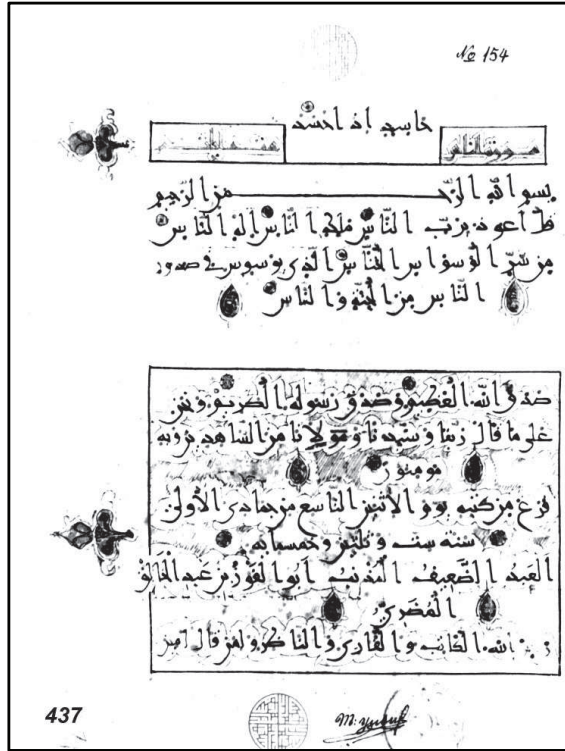 № 154
حاسد إذا حسد
سورة الناس
بسم الله الرحمن الرحيم
قل أعوذ برب الناس ملك الناس إله الناس
من شر الوسواس الخناس الذي يوسوس في صدور
الناس من الجنة والناس
صدق الله العظيم وصدق رسوله الكريم ونحن
على ما قال ربنا وسيدنا ومولانا من الشاهدين وبه
مومنون
فرغ من كتبه يوم الاثنين التاسع من جمادى الأولى
سنة ست وثلثين وخمسمايه
العبد الضعيف المذنب أبو الفوز بن عبد الخالق
المصري
الله الكاتب والقارى والناظر ولمن قال آمين
437